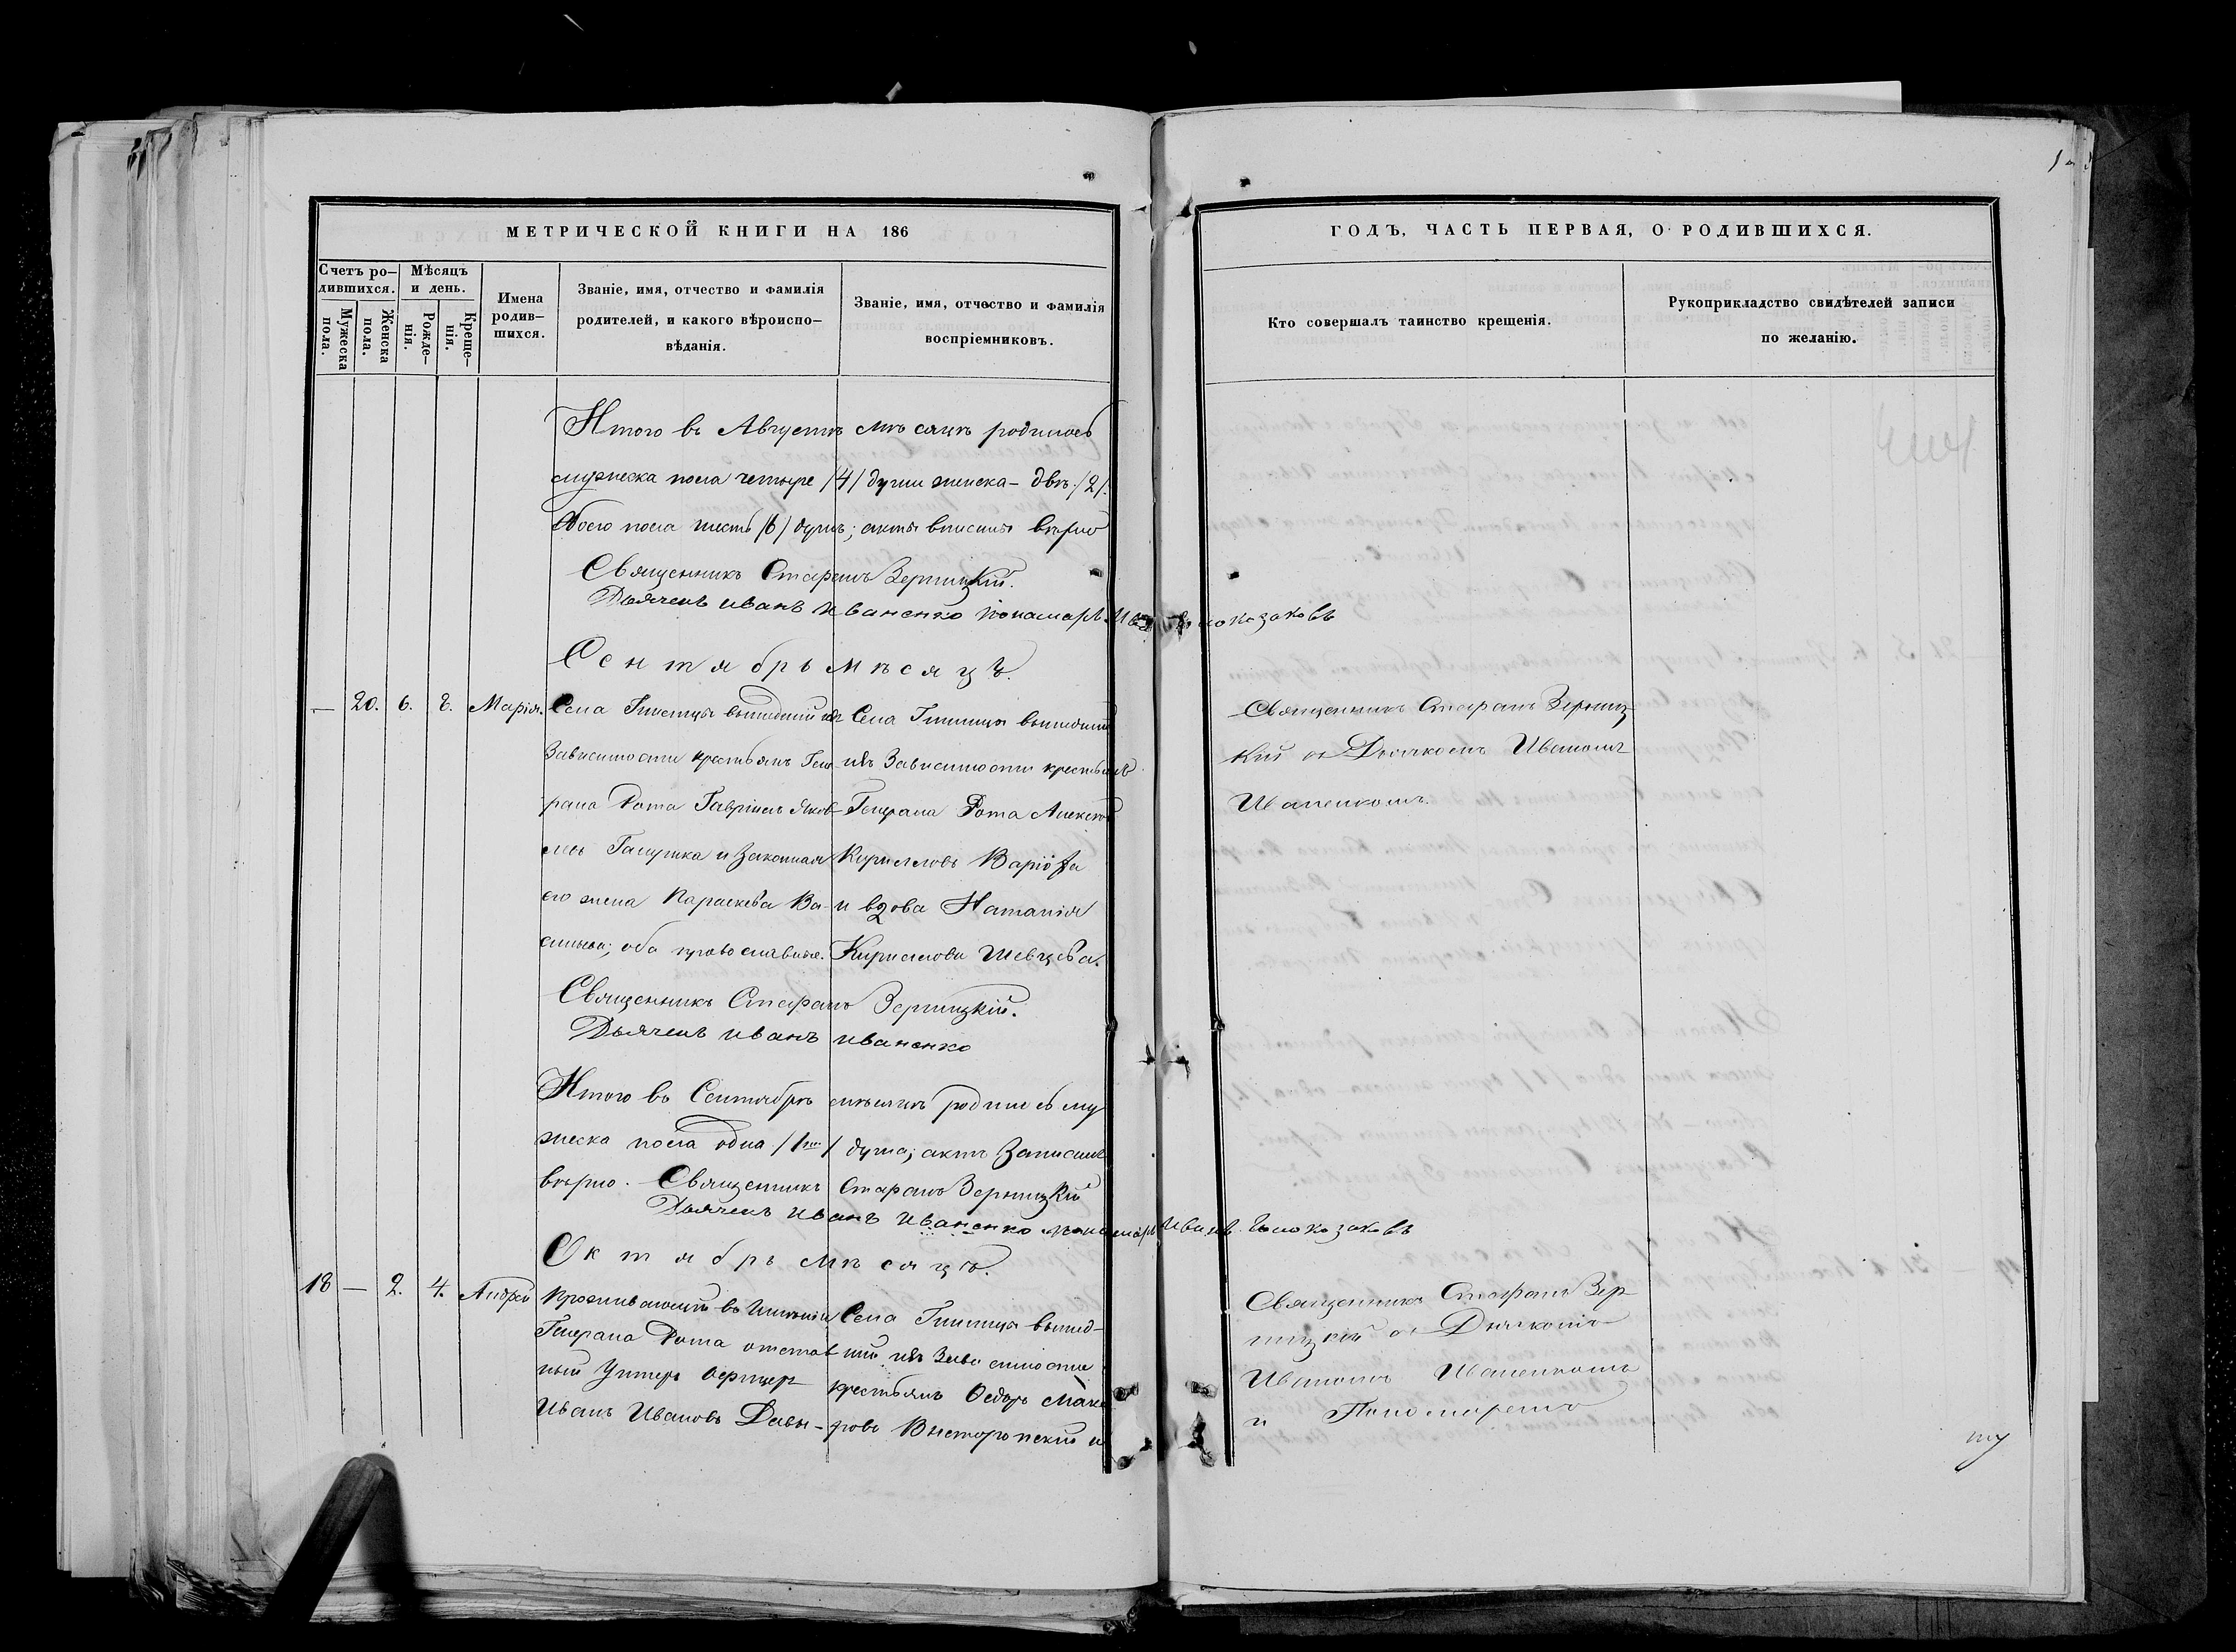 МЕТРИЧЕСКОЙ КНИГИ НА 186
Счетъ ро-
дившихся.
Мужеска
пола.
Женска
пола.
Мѣсяцъ
и день.
Рожде-
нія.
Креще-
нія.
Имена
родив-
шихся.
Званіе, имя, отчество и фамилія
родителей, и какого вѣроиспо-
вѣданія.
Званіе, имя, отчество и фамилія
воспріемниковъ.
Итого въ Августѣ мѣсяцѣ родилось
мужеска пола четыре /4/ души женска - двѣ /2/.
Обоего пола шесть /6/ душъ; акты вписаны вѣрно
Священникъ Стефанъ Зерницкій.
Дьячекъ иванъ иваненко понамаръ
Сентябрь мѣсяцъ.
— 20. 6. 8. Марія.
Села вышедшій изъ
Зависимости крестьянъ Гене-
рала Рота Гавріилъ Яков-
левъ и Законная
его жена Параскева Ва-
сильева; оба православные.
Села вышедшій
изъ Зависимости крестьянъ
Генерала Рота Алексѣй
Кирилловъ
и вдова Наталія
Кириллова Шевцева.
Священникъ Стефанъ Зерницкій.
Дьячекъ иванъ иваненко
Итого въ Сентябрѣ мѣсяцѣ родилось му
жеска пола одна /1/ душа; актъ Записанъ
вѣрно. Священникъ Стефанъ Зерницкій
Дьячекъ иванъ иваненко понамаръ Иванъ Голоказаковъ
Октябрь мѣсяцъ.
18 — 2. 4. Андрей
Проживающій въ Имѣніи
Генерала Рота отстав
ный Унтеръ Офицеръ
Иванъ Ивановъ Давы-
Села вышед-
шій изъ Зависимости
крестьянъ Ѳедоръ Мака
ровъ и
ГОДЪ, ЧАСТЬ ПЕРВАЯ, О РОДИВШИХСЯ.
Кто совершалъ таинство крещенія.
Рукоприкладство свидѣтелей записи
по желанію.
Священникъ Стефанъ Зерниц-
кій съ Дьячкомъ Иваномъ
Иваненкомъ.
Священникъ Стефанъ Зер
ницкій съ Дьячкомъ
Иваномъ Иваненкомъ
и Пономаремъ